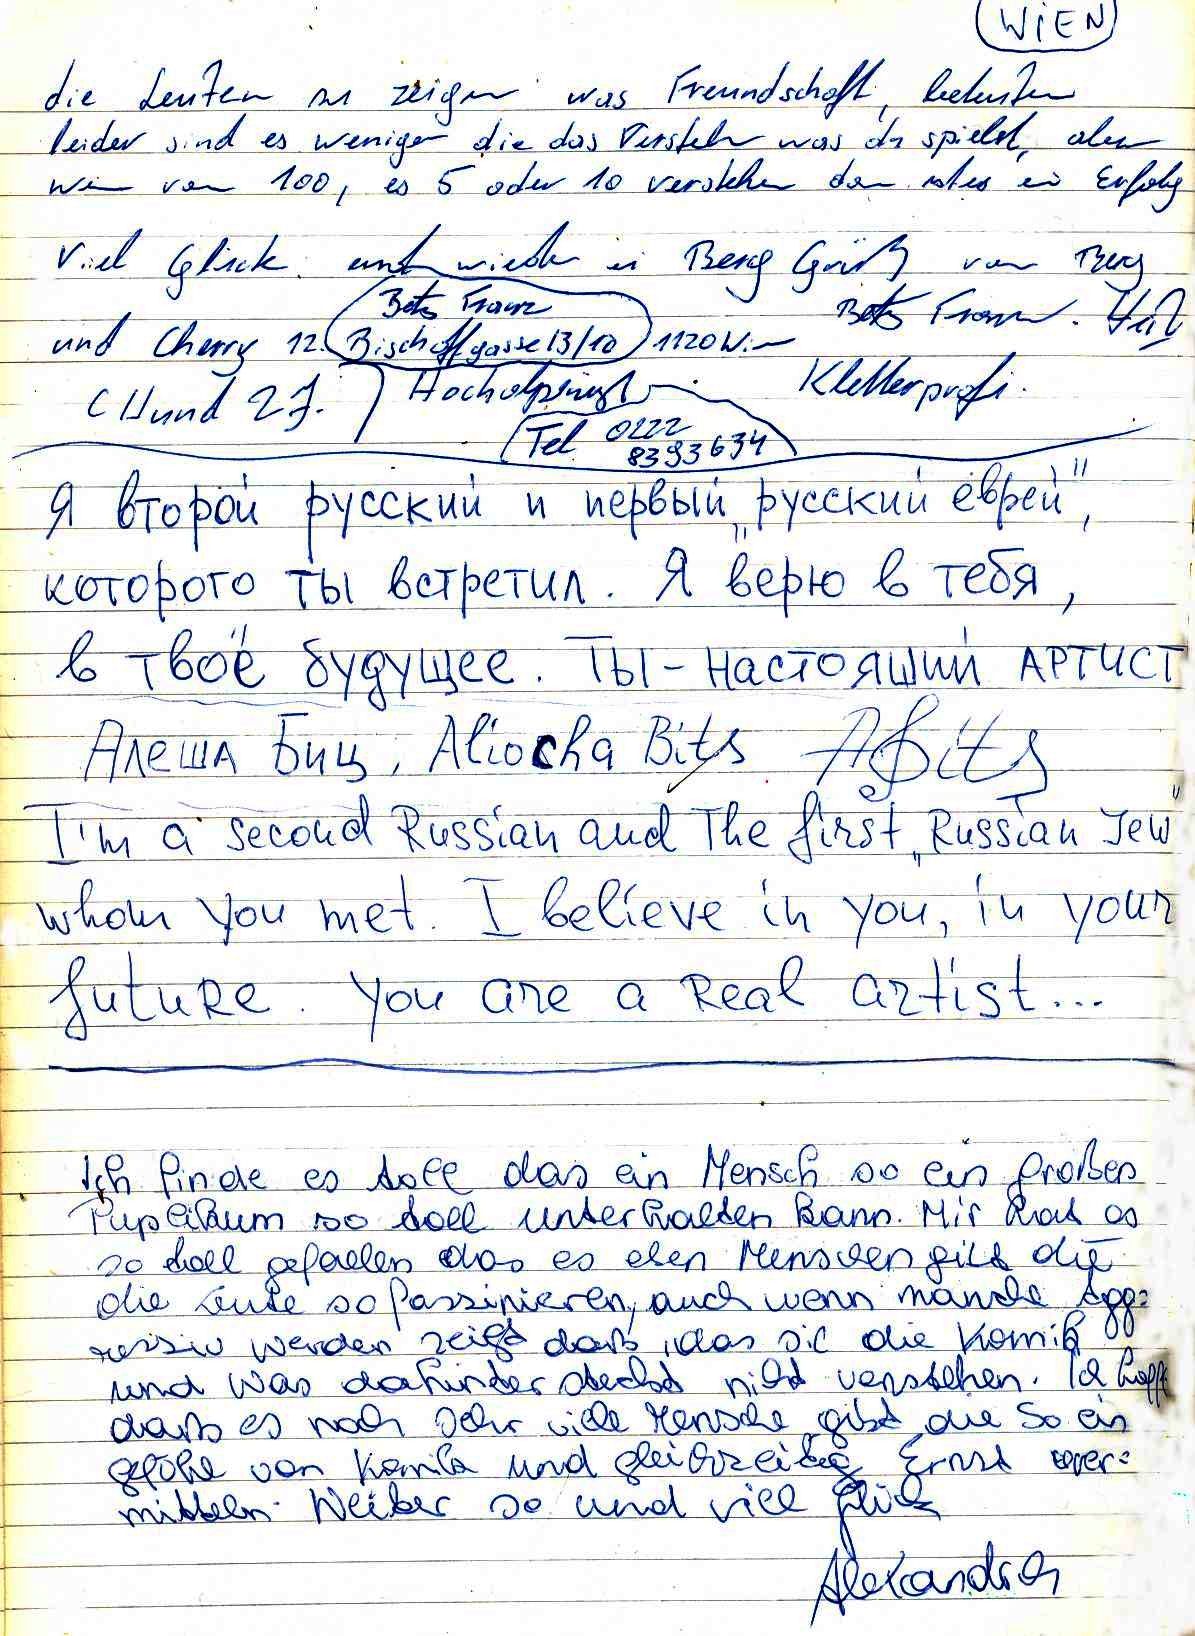 WIEN
die Leuten zu zeigen was Freundschaft, bedeuten
leider sind es weniger die das Verstehn was du spielst, aber
wen von 100, es 5 oder 10 verstehen dan ist es ein Erfolg
Viel Glück. und wieder ein Berg Gruß von Berg
Bets Franz
Bets Franz. Heil
und Cherry 12. Bischoffgasse 13/10 1120 Wien
(Hund 2 J.) Hochalpinist Kletterprofi.
Tel 0222
8393634
Я второй русский и первый „русский еврей",
которого ты встретил. Я верю в тебя,
в твоё будущее. Ты - настоящий АРТИСТ
Алеша Биц, Aliocha Bits ABits
I'm a second Russian and The first „Russian Jew"
whom you met. I believe in you, in your
future. You are a Real artist...
Ich finde es toll das ein Mensch so ein großes
Puplikum so toll unterhalten kann. Mir hat es
so toll gefallen das es eben Menschen gibt die
die Leute so faszinieren, auch wenn manche Agg=
ressiv werden zeigt das, das sie die Komik
und was dahinter steckt nicht verstehen. Ich hoffe
dass es noch sehr viele Mensche gibt die so ein
gefühl von Komik und gleichzeitig Ernst über=
mitteln. Weiter so und viel Glück
Alexandra